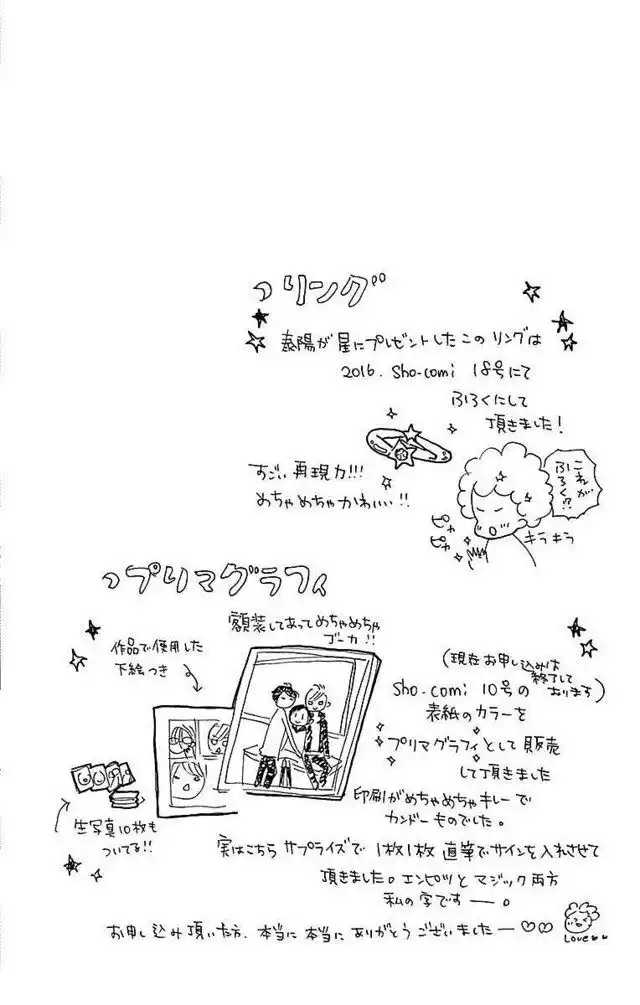 つリング
泰陽が星にプレゼントしたこのリングは
2016. Sho-comi 18号にて
ふろくにして
頂きました!
すごい再現力!!!
めちゃめちゃかわいい!!
これが
ふろく!?
ピャ
ピャ
キラキラ
つプリマグラフィ
額装してあってめちゃめちゃ
ゴーカ!!
作品で使用した
下絵つき
(現在お申し込みは
終了して
おります)
Sho-comi 10号の
表紙のカラーを
プリマグラフィとして販売
して頂きました
印刷がめちゃめちゃキレーで
カンドーものでした。
生写真10枚も
ついてる!!
実はこちらサプライズで1枚1枚直筆でサインを入れさせて
頂きました。エンピツとマジック両方
私の字ですー。
お申し込み頂いた方、本当に本当にありがとうございましたー♡♡
Love♥♥